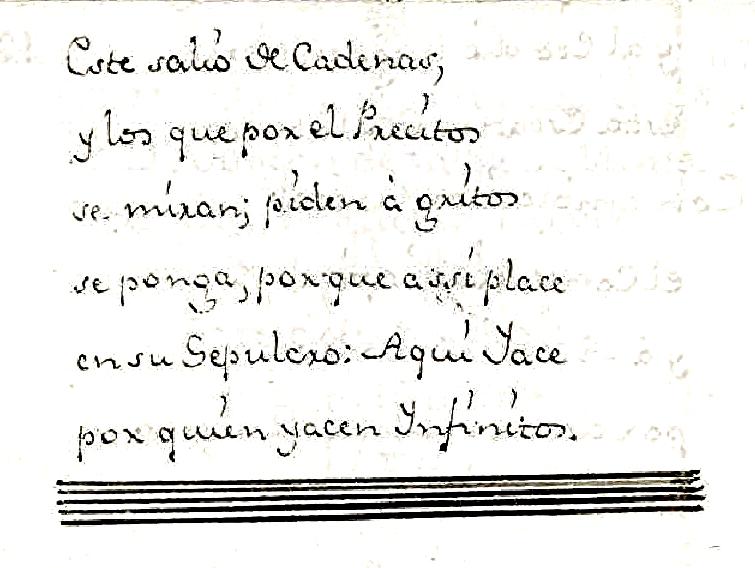 Este salió de Cadenas,
y los que por el Precítos
se míran; píden à grítos
se ponga, porque assí place
en su Sepulcro: Aquí Yace
por quíen yacen Ynfínítos.